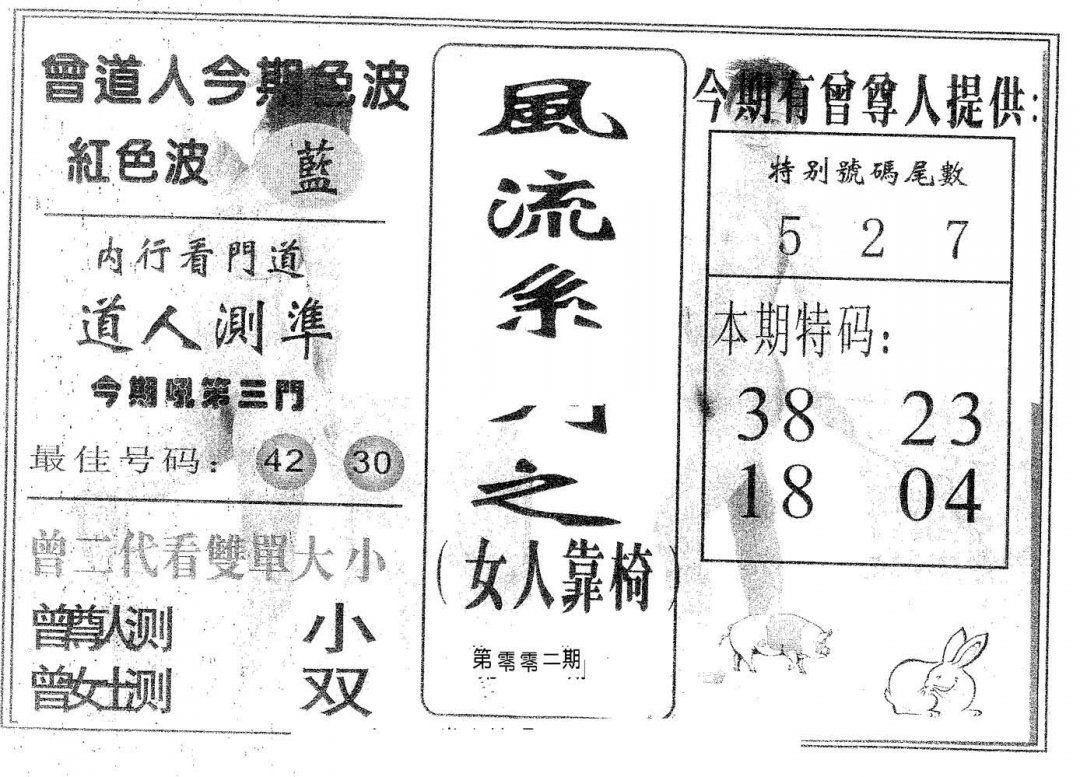 曾道人今期色波
紅色波 藍
内行看門道
道人測準
今期吼第三門
最佳号码：42 30
曾二代看雙單大小
曾尊人测 小
曾女士测 双
風流系
之
（女人靠椅）
第零零二期
今期有曾尊人提供：
特别號碼尾數
5 2 7
本期特码：
38 23
18 04